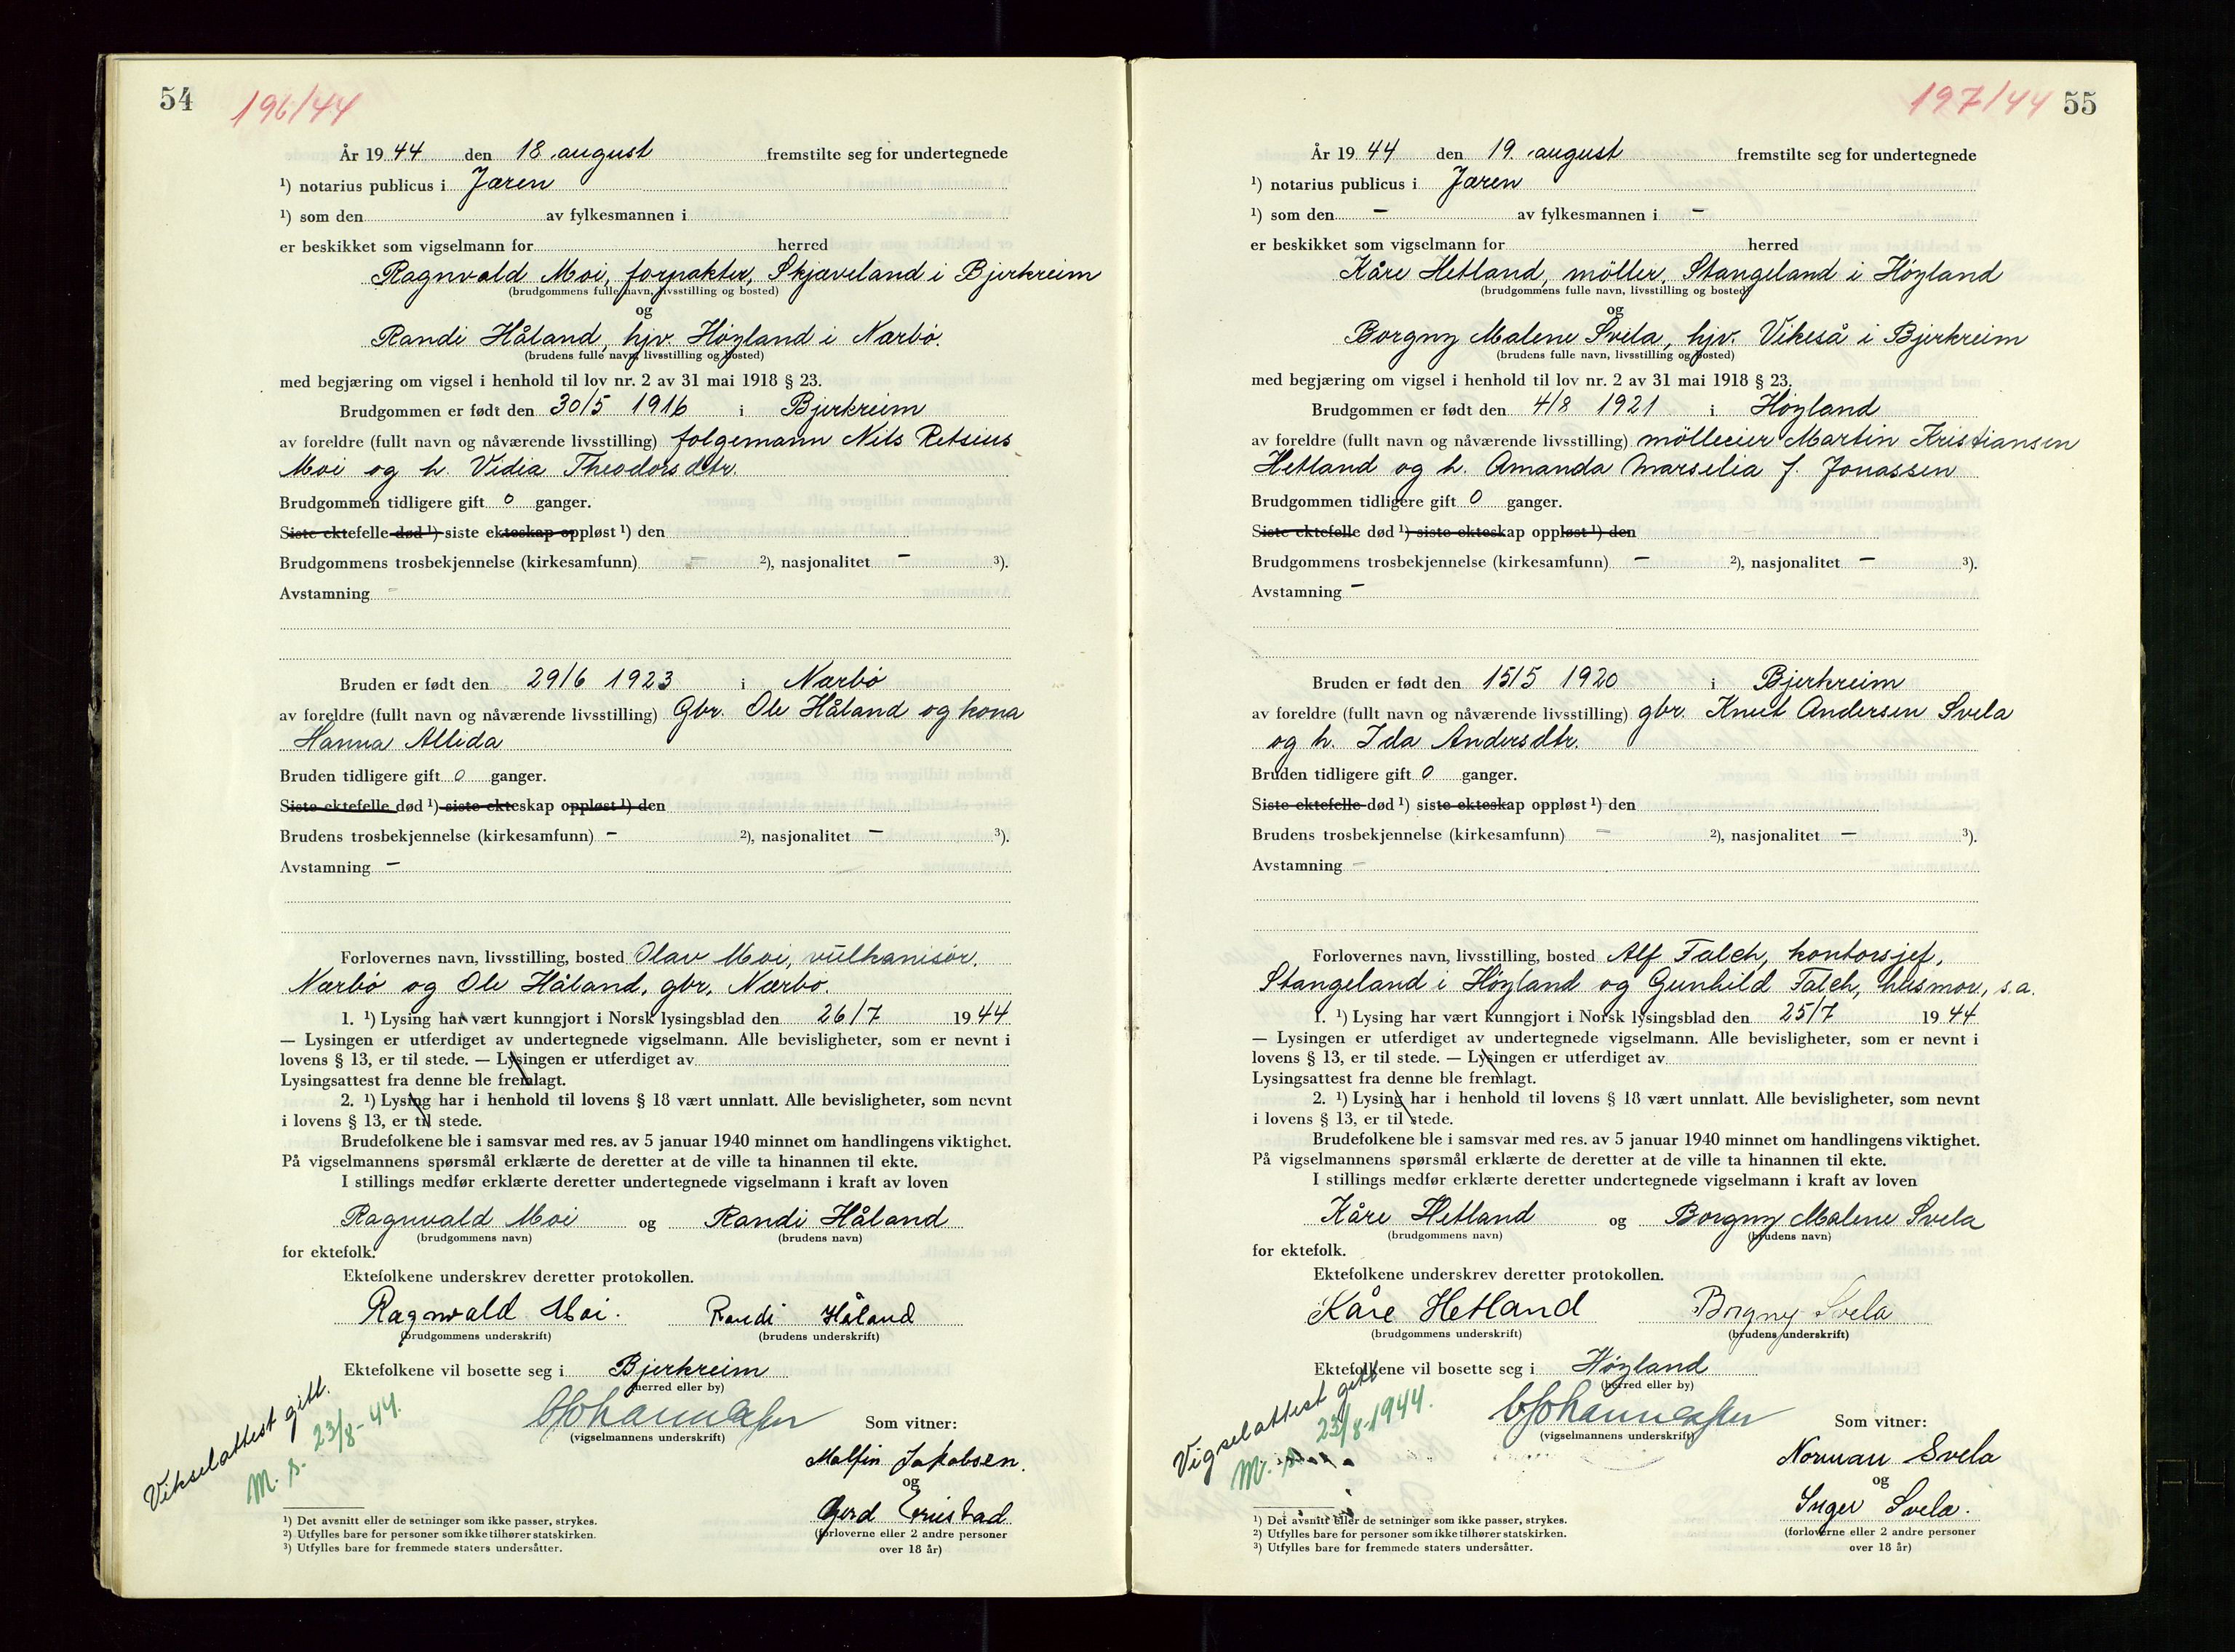 54
196/44
År 1944 den 18. august fremstilte seg for undertegnede
¹) notarius publicus i Jæren
¹) som den av fylkesmannen i
er beskikket som vigselmann for herred
Ragnvald Moi, forpakter, Skjæveland i Bjerkreim
(brudgommens fulle navn, livsstilling og bosted)
og
Randi Håland, hjv. Høyland i Nærbø.
(brudens fulle navn, livsstilling og bosted)
med begjæring om vigsel i henhold til lov nr. 2 av 31 mai 1918 § 23.
Brudgommen er født den 30/5 1916 i Bjerkreim
av foreldre (fullt navn og nåværende livsstilling) følgemann Nils Retsius
Moi og h. Vidia Theodorsdtr.
Brudgommen tidligere gift 0 ganger.
Siste ektefelle død ¹) siste ekteskap oppløst ¹) den
Brudgommens trosbekjennelse (kirkesamfunn) – ²), nasjonalitet – ³).
Avstamning –
Bruden er født den 29/6 1923 i Nærbø
av foreldre (fullt navn og nåværende livsstilling) Gbr. Ole Håland og kona
Hanna Allida
Bruden tidligere gift 0 ganger.
Siste ektefelle død ¹) siste ekteskap oppløst ¹) den
Brudens trosbekjennelse (kirkesamfunn) – ²), nasjonalitet – ³).
Avstamning –
Forlovernes navn, livsstilling, bosted Olav Moi, vulkanisør,
Nærbø og Ole Håland, gbr, Nærbø.
1. ¹) Lysing har vært kunngjort i Norsk lysingsblad den 26/7 1944
— Lysingen er utferdiget av undertegnede vigselmann. Alle bevisligheter, som er nevnt i
lovens § 13, er til stede. — Lysingen er utferdiget av
Lysingsattest fra denne ble fremlagt.
2. ¹) Lysing har i henhold til lovens § 18 vært unnlatt. Alle bevisligheter, som nevnt
i lovens § 13, er til stede.
Brudefolkene ble i samsvar med res. av 5 januar 1940 minnet om handlingens viktighet.
På vigselmannens spørsmål erklærte de deretter at de ville ta hinannen til ekte.
I stillings medfør erklærte deretter undertegnede vigselmann i kraft av loven
Ragnvald Moi og Randi Håland
(brudgommens navn) (brudens navn)
for ektefolk.
Ektefolkene underskrev deretter protokollen.
Ragnvald Moi. Randi Håland
(brudgommens underskrift) (brudens underskrift)
Ektefolkene vil bosette seg i Bjerkreim
(herred eller by)
Vikselattest gitt.
M. S. 23/8-44.
(vigselmannens underskrift)
Som vitner:
Malfin Jakobsen.
og
Gerd
(forloverne eller 2 andre personer
over 18 år)
¹) Det avsnitt eller de setninger som ikke passer, strykes.
²) Utfylles bare for personer som ikke tilhører statskirken.
³) Utfylles bare for fremmede staters undersåtter.
197/44
55
År 1944 den 19. august fremstilte seg for undertegnede
¹) notarius publicus i Jæren
¹) som den – av fylkesmannen i –
er beskikket som vigselmann for herred
Kåre Hetland, möller, Stangeland i Høyland
(brudgommens fulle navn, livsstilling og bosted)
og
Borgny Malene Svela, hjv. Vikeså i Bjerkreim
(brudens fulle navn, livsstilling og bosted)
med begjæring om vigsel i henhold til lov nr. 2 av 31 mai 1918 § 23.
Brudgommen er født den 4/8 1921 i Høyland
av foreldre (fullt navn og nåværende livsstilling) mölleeier Martin Kristiansen
Hetland og h. Amanda Marselia f. Jonassen
Brudgommen tidligere gift 0 ganger.
Siste ektefelle død ¹) siste ekteskap oppløst ¹) den
Brudgommens trosbekjennelse (kirkesamfunn) – ²), nasjonalitet – ³).
Avstamning –
Bruden er født den 15/5 1920 i Bjerkreim
av foreldre (fullt navn og nåværende livsstilling) gbr. Knut Andersen Svela
og h. Ida Andersdtr.
Bruden tidligere gift 0 ganger.
Siste ektefelle død ¹) siste ekteskap oppløst ¹) den
Brudens trosbekjennelse (kirkesamfunn) – ²), nasjonalitet – ³).
Avstamning –
Forlovernes navn, livsstilling, bosted Alf Falch, kontorsjef,
Stangeland i Høyland og Gunhild Falch, husmor, s.a.
1. ¹) Lysing har vært kunngjort i Norsk lysingsblad den 25/7 1944
— Lysingen er utferdiget av undertegnede vigselmann. Alle bevisligheter, som er nevnt i
lovens § 13, er til stede. — Lysingen er utferdiget av
Lysingsattest fra denne ble fremlagt.
2. ¹) Lysing har i henhold til lovens § 18 vært unnlatt. Alle bevisligheter, som nevnt
i lovens § 13, er til stede.
Brudefolkene ble i samsvar med res. av 5 januar 1940 minnet om handlingens viktighet.
På vigselmannens spørsmål erklærte de deretter at de ville ta hinannen til ekte.
I stillings medfør erklærte deretter undertegnede vigselmann i kraft av loven
Kåre Hetland og Borgny Malene Svela
(brudgommens navn) (brudens navn)
for ektefolk.
Ektefolkene underskrev deretter protokollen.
Kåre Hetland Borgny Svela
(brudgommens underskrift) (brudens underskrift)
Ektefolkene vil bosette seg i Høyland
(herred eller by)
Vigselattest gitt
M. S. 23/8-1944.
(vigselmannens underskrift)
Som vitner:
Norman Svela
og
Inger Svela.
(forloverne eller 2 andre personer
over 18 år)
¹) Det avsnitt eller de setninger som ikke passer, strykes.
²) Utfylles bare for personer som ikke tilhører statskirken.
³) Utfylles bare for fremmede staters undersåtter.